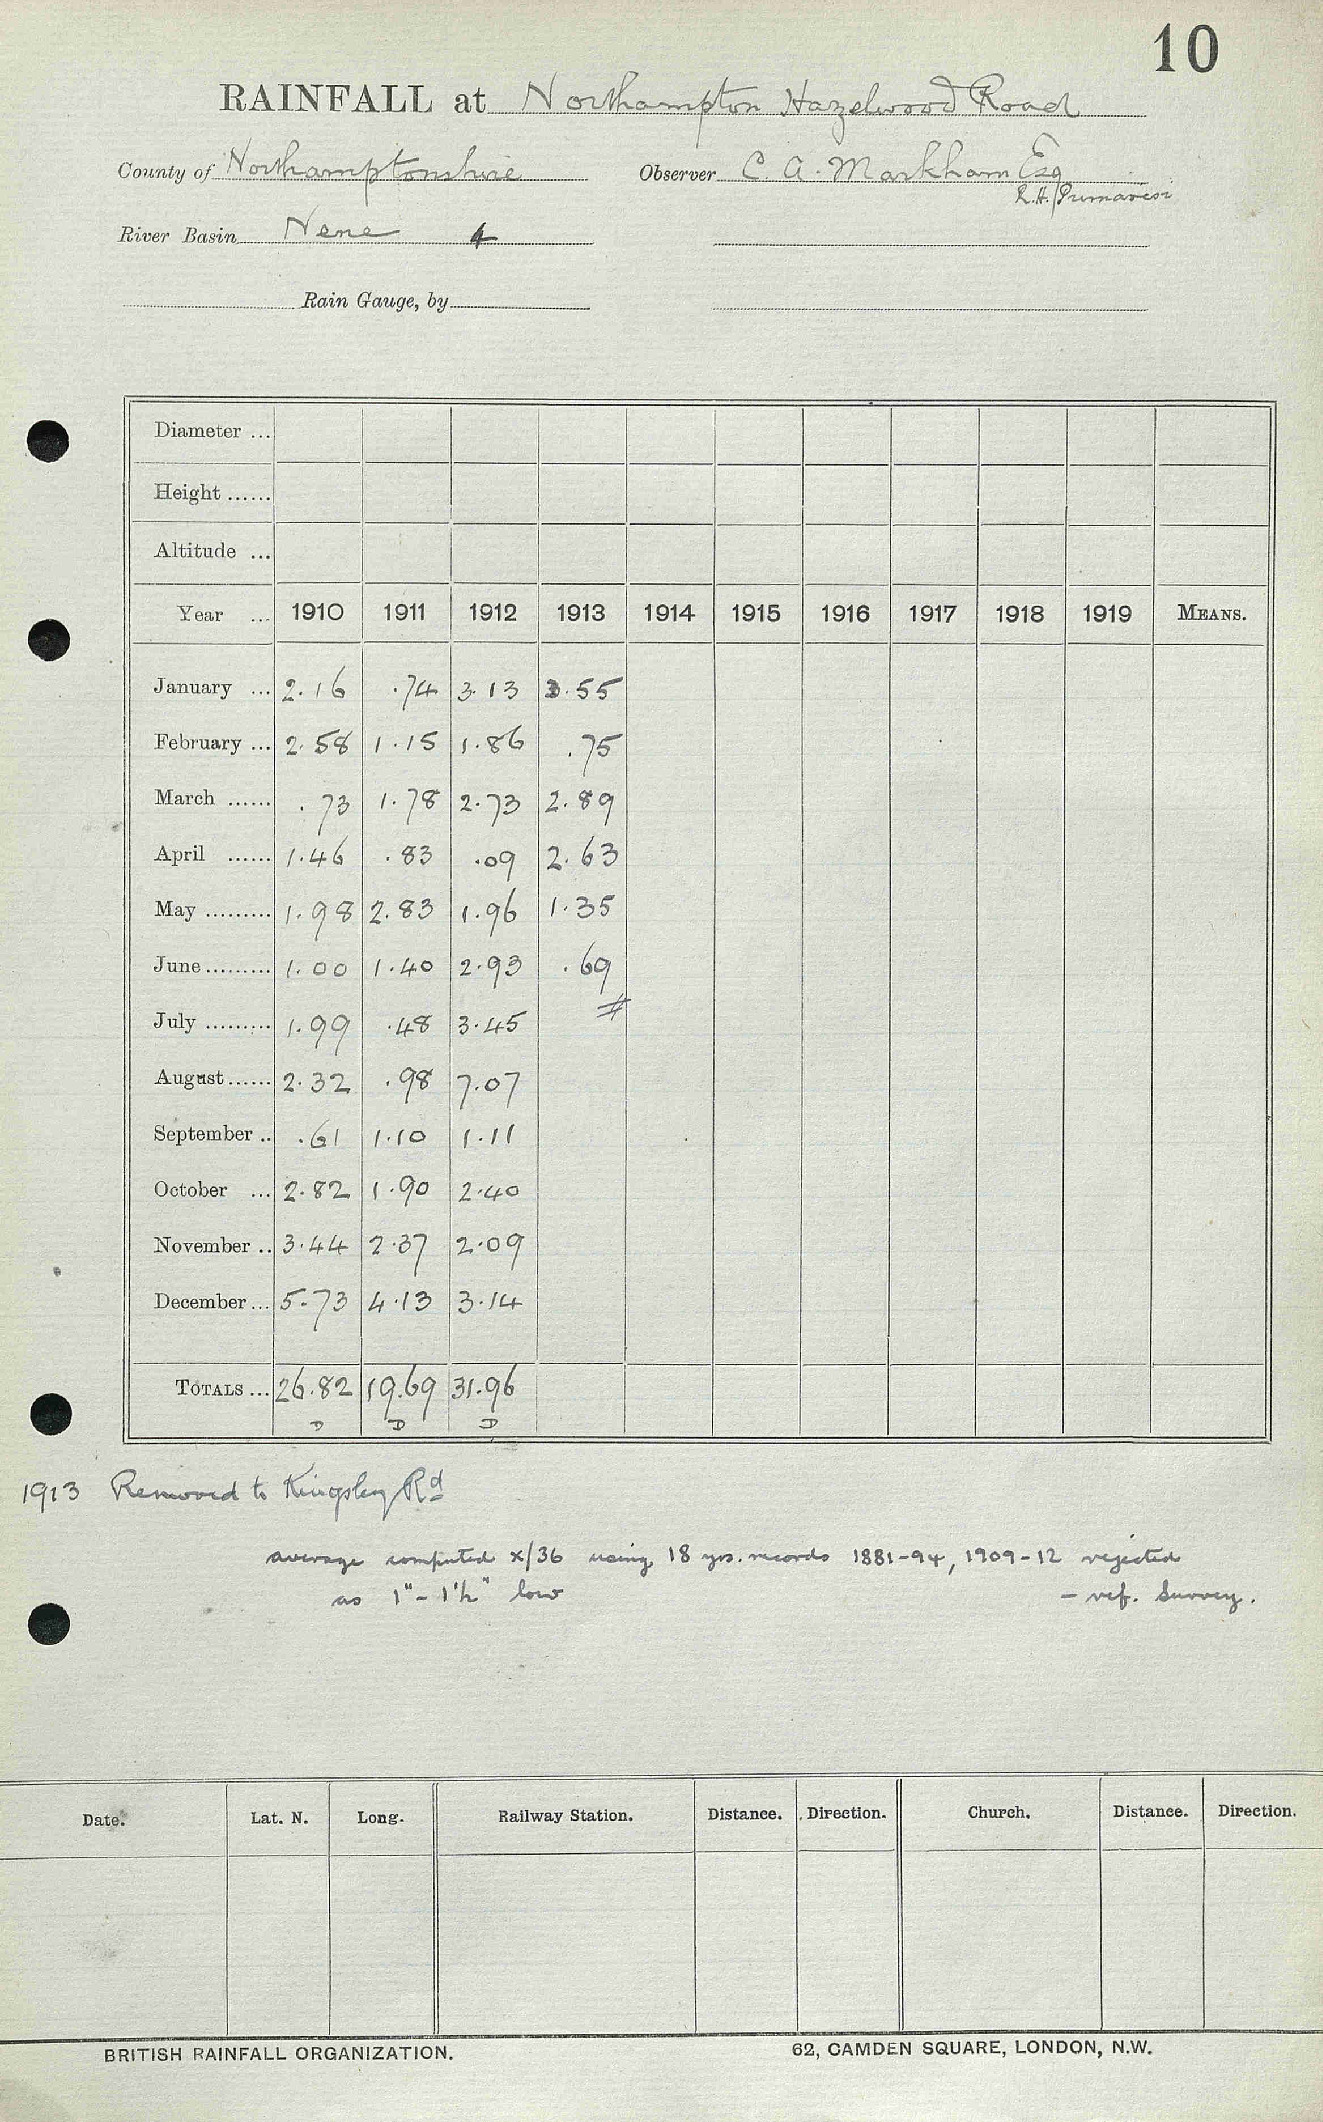 10
RAINFALL at Northampton Hazelwood Road
County of Northamptonshire Observer C. A. Markham Esq
R.H. Primavesi
River Basin Nene 4
Rain Gauge, by
Diameter ...
Height ......
Altitude ...
Year ... 1910 1911 1912 1913 1914 1915 1916 1917 1918 1919 MEANS.
January ... 2.16 .74 3.13 3.55
February ... 2.58 1.15 1.86 .75
March ...... .73 1.78 2.73 2.89
April ...... 1.46 .83 .09 2.63
May ......... 1.98 2.83 1.96 1.35
June ......... 1.00 1.40 2.93 .69
July ......... 1.99 .48 3.45
August ...... 2.32 .98 7.07
September .. .61 1.10 1.11
October ... 2.82 1.90 2.40
November .. 3.44 2.37 2.09
December ... 5.73 4.13 3.14
TOTALS ... 26.82 19.69 31.96
D D D
1913 Removed to Kingsley Rd
average computed x/36 using 18 yrs. records 1881-94, 1909-12 rejected
as 1"- 1½" low - ref. Survey.
Date. Lat. N. Long. Railway Station. Distance. Direction. Church. Distance. Direction.
BRITISH RAINFALL ORGANIZATION. 62, CAMDEN SQUARE, LONDON, N.W.